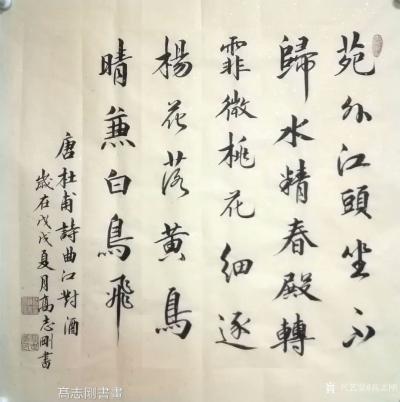 苑外江頭坐不
歸水精春殿轉
霏微桃花細逐
楊花落黃鳥
晴兼白鳥飛
唐杜甫詩曲江對酒
歲在戊戌夏月高志剛書
高志剛書畫